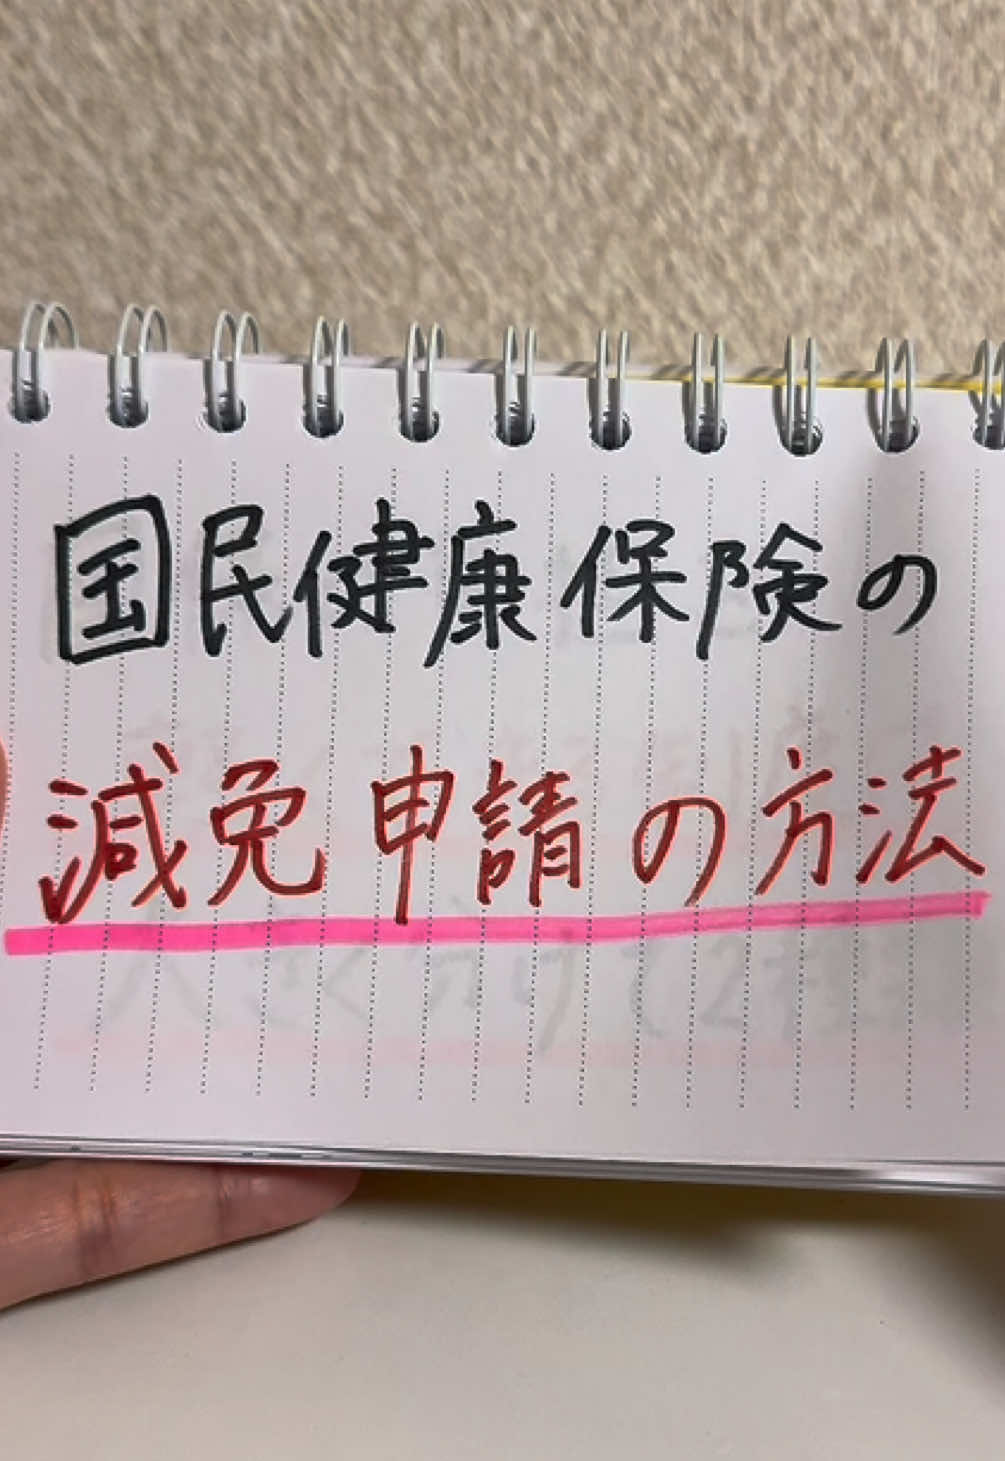 国民健康保険の
減免申請の方法